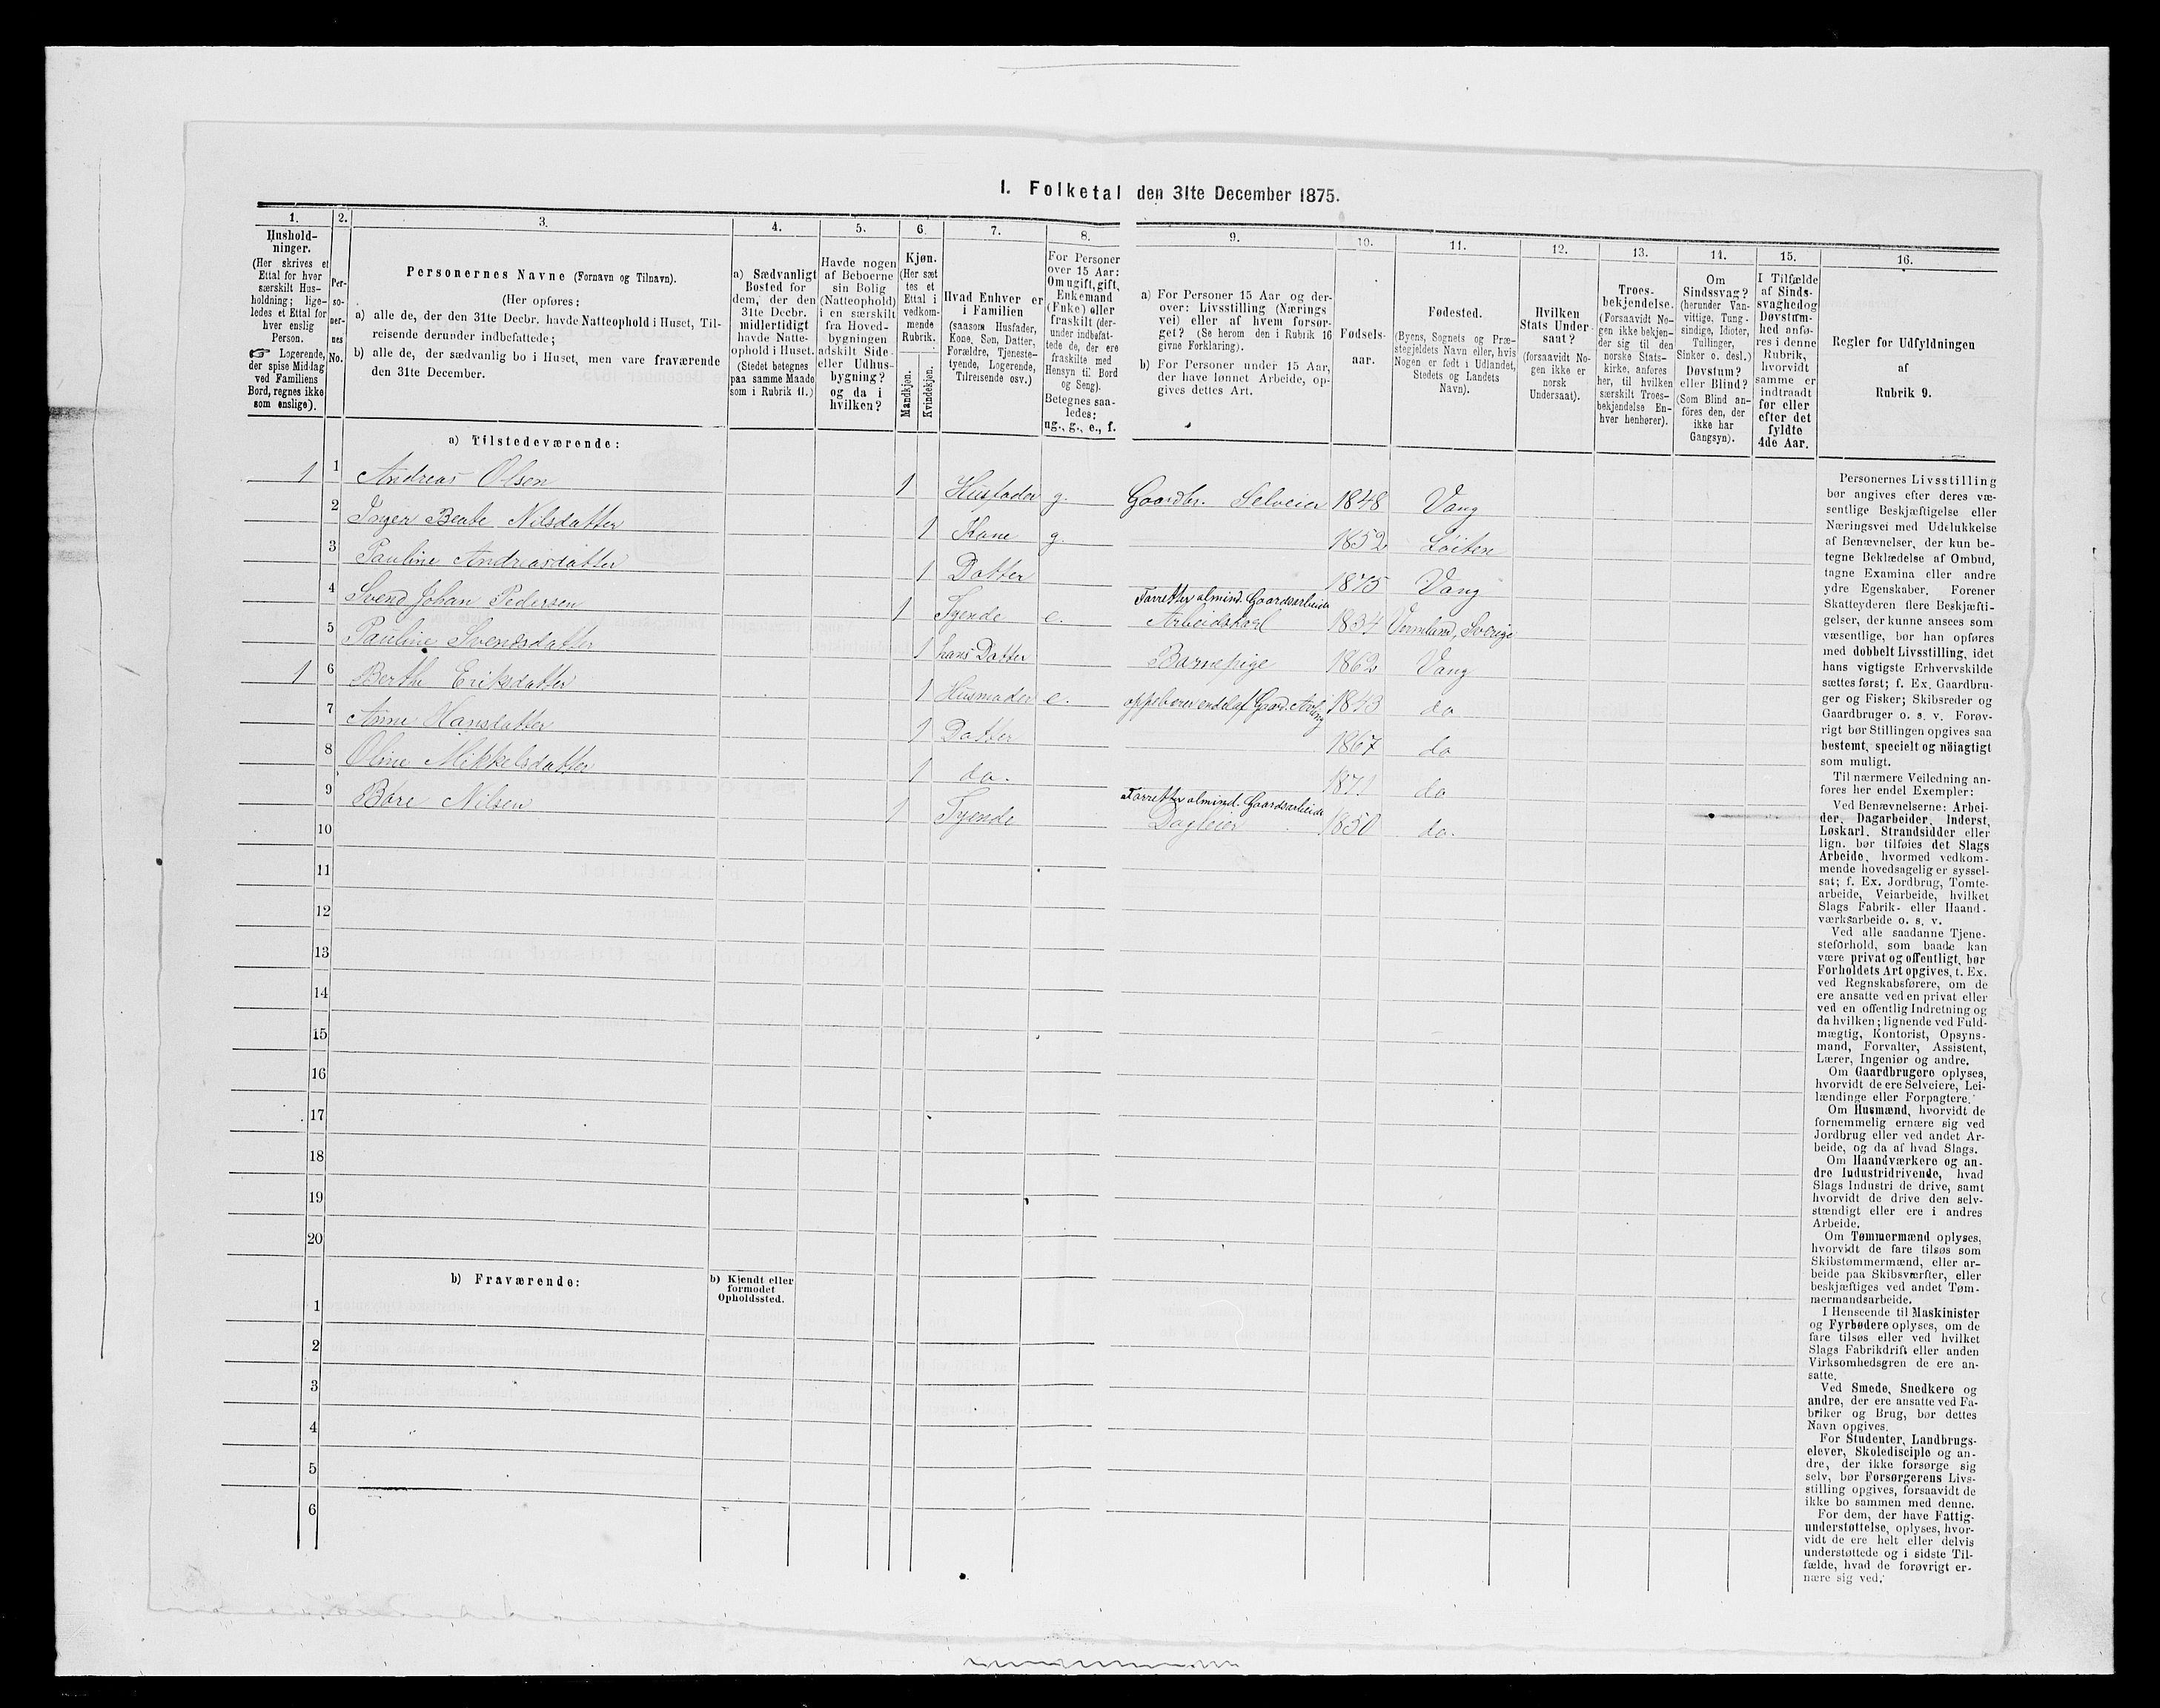 I. Folketal den 31te December 1875.
1.
Hushold-
ninger.
(Her skrives et
Ettal for hver
særskilt Hus-
holdning; lige-
ledes et Ettal for
hver enslig
Person.
☞ Logerende,
der spise Middag
ved Familiens
Bord, regnes ikke
som enslige).
2.
Per-
so-
ner-
nes
No.
3.
Personernes Navne (Fornavn og Tilnavn).
(Her opføres:
a) alle de, der den 31te Decbr. havde Natteophold i Huset, Til-
reisende derunder indbefattede;
b) alle de, der sædvanlig bo i Huset, men vare fraværende
den 31te December.
4.
a) Sædvanligt
Bosted for
dem, der den
31te Decbr.
midlertidigt
havde Natte-
ophold i Huset.
(Stedet betegnes
paa samme Maade
som i Rubrik 11.)
5.
Havde nogen
af Beboerne
sin Bolig
(Natteophold)
i en særskilt
fra Hoved-
bygningen
adskilt Side-
eller Udhus-
bygning?
og da i
hvilken?
6.
Kjøn.
(Her sæt-
tes et
Ettal i
vedkom-
mende
Rubrik.
Mandkjøn.
Kvindekjøn.
7.
Hvad Enhver er
i Familien
(saasom Husfader,
Kone, Søn, Datter,
Forældre, Tjeneste-
tyende, Logerende,
Tilreisende osv.)
8.
For Personer
over 15 Aar:
Om ugift, gift,
Enkemand
(Enke) eller
fraskilt (der-
under indbefat-
tede de, der ere
fraskilte med
Hensyn til Bord
og Seng).
Betegnes saa-
ledes:
ug., g., e., f.
9.
a) For Personer 15 Aar og der-
over: Livsstilling (Nærings-
vei) eller af hvem forsør-
get? (Se herom den i Rubrik 16
givne Forklaring).
b) For Personer under 15 Aar,
der have lønnet Arbeide, op-
gives dettes Art.
10.
Fødsels-
aar.
11.
Fødested.
(Byens, Sognets og Præ-
stegjeldets Navn eller, hvis
Nogen er født i Udlandet,
Stedets og Landets
Navn).
12.
Hvilken
Stats Under-
saat?
(forsaavidt No-
gen ikke er
norsk
Undersaat).
13.
Troes-
bekjendelse.
(Forsaavidt No-
gen ikke bekjen-
der sig til den
norske Stats-
kirke, anføres
her, til hvilken
særskilt Troes-
bekjendelse En-
hver henhører).
14.
Om
Sindssvag?
(herunder Van-
vittige, Tung-
sindige, Idioter,
Tullinger,
Sinker o. desl.)
Døvstum?
eller Blind?
(Som Blind an-
føres den, der
ikke har
Gangsyn).
15.
I Tilfælde
af Sinds-
svaghed og
Døvstum-
hed anfø-
res i denne
Rubrik,
hvorvidt
samme er
indtraadt
før eller
efter det
fyldte
4de Aar.
16.
Regler for Udfyldningen
af
Rubrik 9.
a) Tilstedeværende:
1 1 Andreas Olsen 1 Husfader g. Gaardbr. Selveier 1848 Vang
2 Inger Beate Nilsdatter 1 Kone g. 1852 Löiten
3 Pauline Andreasdatter 1 Datter 1875 Vang
4 Svend Johan Pedersen 1 Tyende e. Forretter almind. Gaardsarbeide
Arbeidskarl 1834 Vermland, Sverige
5 Pauline Svendsdatter 1 hans Datter Barnepige 1862 Vang
1 6 Berthe Eriksdatter 1 Husmoder e. 1843 do
7 Anne Hansdatter 1 Datter 1867 do
8 Oline Mikkelsdatter 1 do. 1871 do
9 Bore Nilsen 1 Tyende Forretter almind. Gaardsarbeide
Dagleier 1850 do.
10
11
12
13
14
15
16
17
18
19
20
b) Fraværende:
b) Kjendt eller
formodet
Opholdssted.
1
2
3
4
5
6
Personernes Livsstilling
bør angives efter deres væ-
sentlige Beskjæftigelse eller
Næringsvei med Udelukkelse
af Benævnelser, der kun be-
tegne Beklædelse af Ombud,
tagne Examina eller andre
ydre Egenskaber. Forener
Skatteyderen flere Beskjæfti-
gelser, der kunne ansees som
væsentlige, bør han opføres
med dobbelt Livsstilling, idet
hans vigtigste Erhvervskilde
sættes først; f. Ex. Gaardbru-
ger og Fisker; Skibsreder og
Gaardbruger o. s. v. Forøv-
rigt bør Stillingen opgives saa
bestemt, specielt og nöiagtigt
som muligt.
Til nærmere Veiledning an-
føres her endel Exempler:
Ved Benævnelserne: Arbei-
der, Dagarbeider, Inderst,
Løskarl, Strandsidder eller
lign. bør tilføies det Slags
Arbeide, hvormed vedkom-
mende hovedsagelig er syssel-
sat; f. Ex. Jordbrug, Tomte-
arbeide, Veiarbeide, hvilket
Slags Fabrik- eller Haand-
værksarbeide o. s. v.
Ved alle saadanne Tjene-
steforhold, som baade kan
være privat og offentligt, bør
Forholdets Art opgives, t. Ex.
ved Regnskabsførere, om de
ere ansatte ved en privat eller
ved en offentlig Indretning og
da hvilken; lignende ved Fuld-
mægtig, Kontorist, Opsyns-
mand, Forvalter, Assistent,
Lærer, Ingeniør og andre.
Om Gaardbrugere oplyses,
hvorvidt de ere Selveiere, Lei-
lændinge eller Forpagtere.
Om Husmænd, hvorvidt de
fornemmelig ernære sig ved
Jordbrug eller ved andet Ar-
beide, og da af hvad Slags.
Om Haandværkere og an-
dre Industridrivende, hvad
Slags Industri de drive, samt
hvorvidt de drive den selv-
stændigt eller ere i andres
Arbeide.
Om Tømmermænd oplyses,
hvorvidt de fare tilsøs som
Skibstømmermænd, eller ar-
beide paa Skibsværfter, eller
beskjæftiges ved andet Tøm-
mermandsarbeide.
I Henseende til Maskinister
og Fyrbødere oplyses, om de
fare tilsøs eller ved hvilket
Slags Fabrikdrift eller anden
Virksomhedsgren de ere an-
satte.
Ved Smede, Snedkere og
andre, der ere ansatte ved Fa-
briker og Brug, bør dettes
Navn opgives.
For Studenter, Landbrugs-
elever, Skoledisciple og an-
dre, der ikke forsørge sig
selv, bør Forsørgerens Livs-
stilling opgives, forsaavidt de
ikke bo sammen med denne.
For dem, der have Fattig-
understøttelse, oplyses, hvor-
vidt de ere helt eller delvis
understøttede og i sidste Til-
fælde, hvad de forøvrigt er-
nære sig ved.